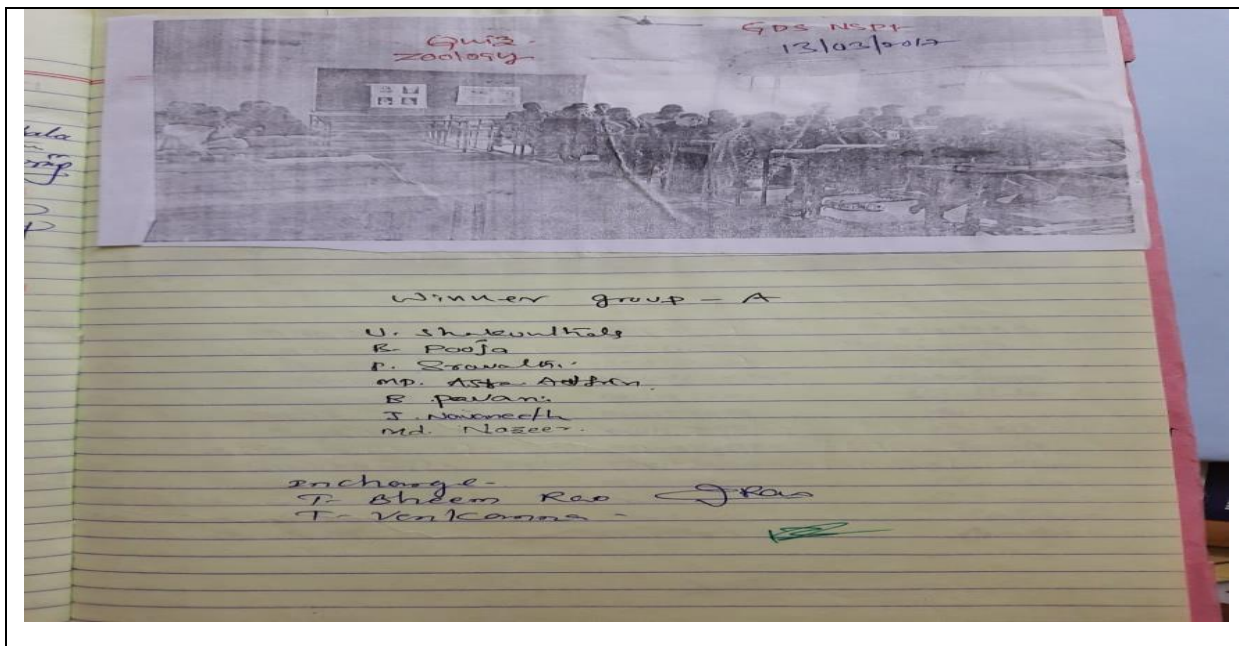 Quiz
Zoology
GDS NSPT
Winner group - A
U. Shakunthala
B. Pooja
P. Sravathi
MD.
B. Pavani
J. Navaneeth
Md. Nazeer.
Incharge -
T- Bheem Rao
T- Venkanna -